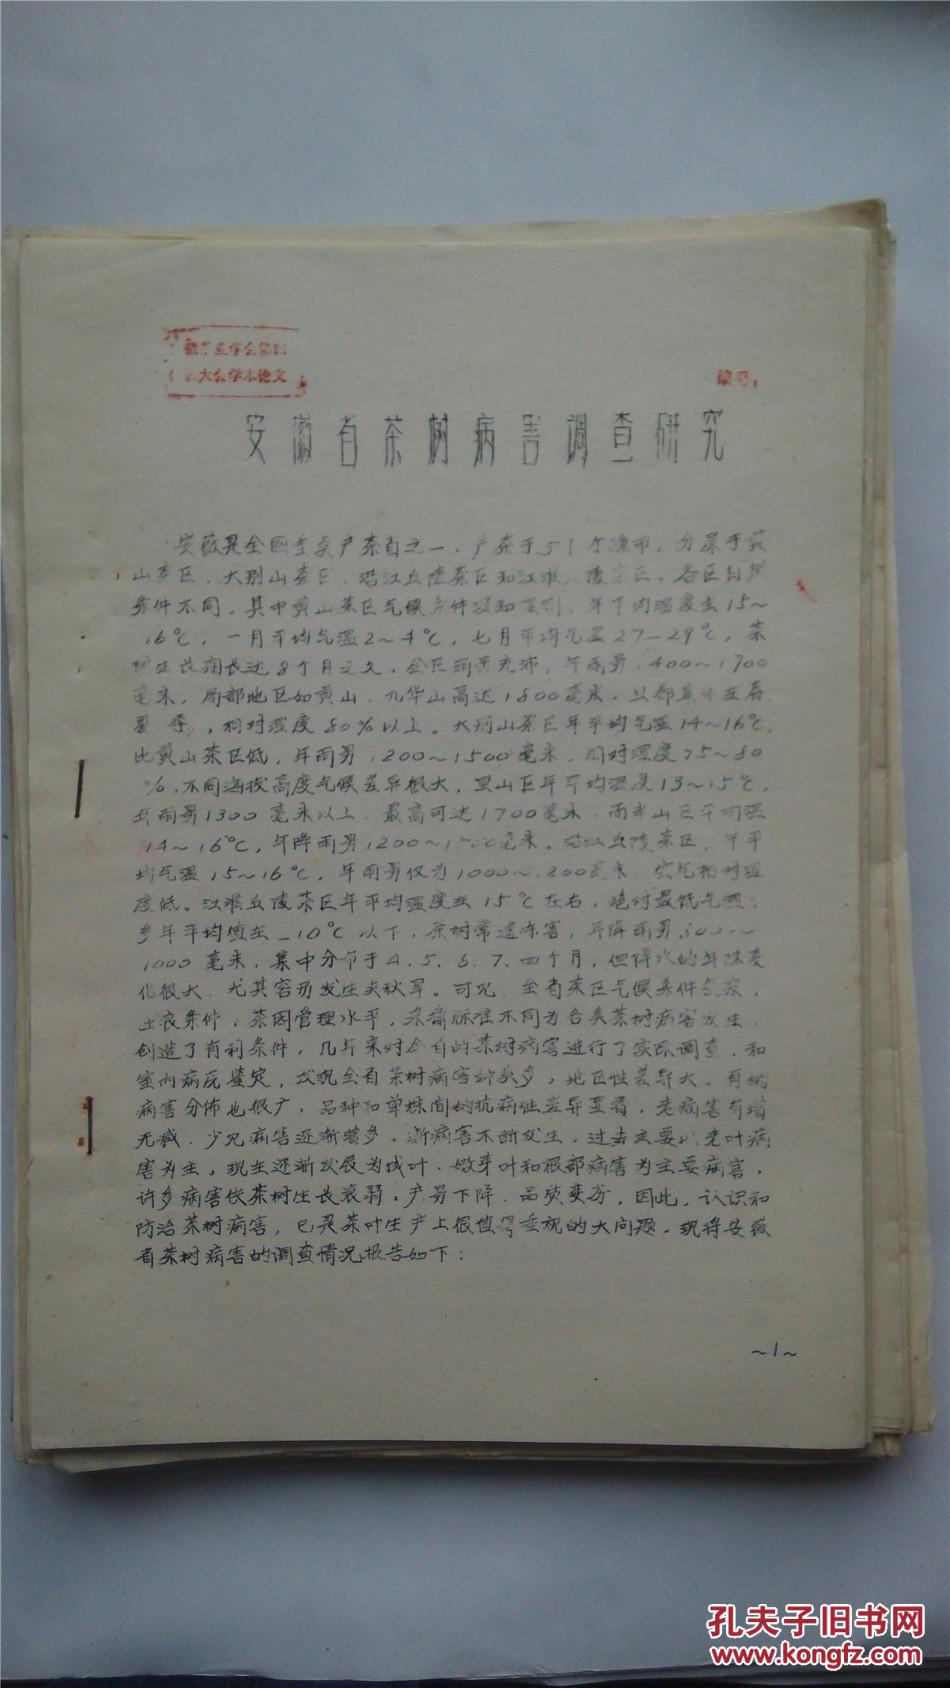 大会学术论文
编号:
安徽省茶树病害调查研究
安徽是全国重点产茶省之一,产茶于51个县市,分属于黄
山茶区、大别山茶区、沿江丘陵茶区和江淮丘陵茶区,各区自然
条件不同,其中黄山茶区气候条件,年平均温度在15~
16℃,一月平均气温2~4℃,七月平均气温27—29℃,茶
树生长期长达8个月之久,全区雨量充沛,年雨量1400~1700
毫米,局部地区如黄山、九华山高达1800毫米,且都集中在春
夏季,相对湿度80%以上。大别山茶区年平均气温14~16℃,
比黄山茶区低,年雨量1200~1500毫米,相对湿度75~80
%,不同海拔高度气候差异很大,里山区年平均温度13~15℃,
年雨量1300毫米以上,最高可达1700毫米,而半山区平均温
14~16℃,年降雨量1200~毫米。沿江丘陵茶区,年平
均气温15~16℃,年雨量仅为1000~1200毫米,空气相对湿
度低。江淮丘陵茶区年平均温度在15℃左右,绝对最低气温,
多年平均值在-10℃以下,茶树常遭冻害,年降雨量800~
1000毫米,集中分布于4.5.6.7.四个月,但降水的年际变
化很大,尤其容易发生夹秋旱。可见,全省茶区气候条件复杂,
土壤条件,茶园管理水平,采摘标准不同为各类茶树病害发生,
创造了有利条件,几年来对全省的茶树病害进行了实际调查,和
室内病原鉴定,发现全省茶树病害种类多,地区性差异大,有的
病害分佈也很广,品种和单株间的抗病性差异显著,老病害有增
无减,少见病害逐渐增多,新病害不断发生,过去主要以老叶病
害为主,现在逐渐发展为成叶、嫩芽叶和根部病害为主要病害,
许多病害使茶树生长衰弱,产量下降,品质变劣,因此,认识和
防治茶树病害,已是茶叶生产上很值得重视的大问题,现将安徽
省茶树病害的调查情况报告如下:
~1~
孔夫子旧书网
www.kongfz.com